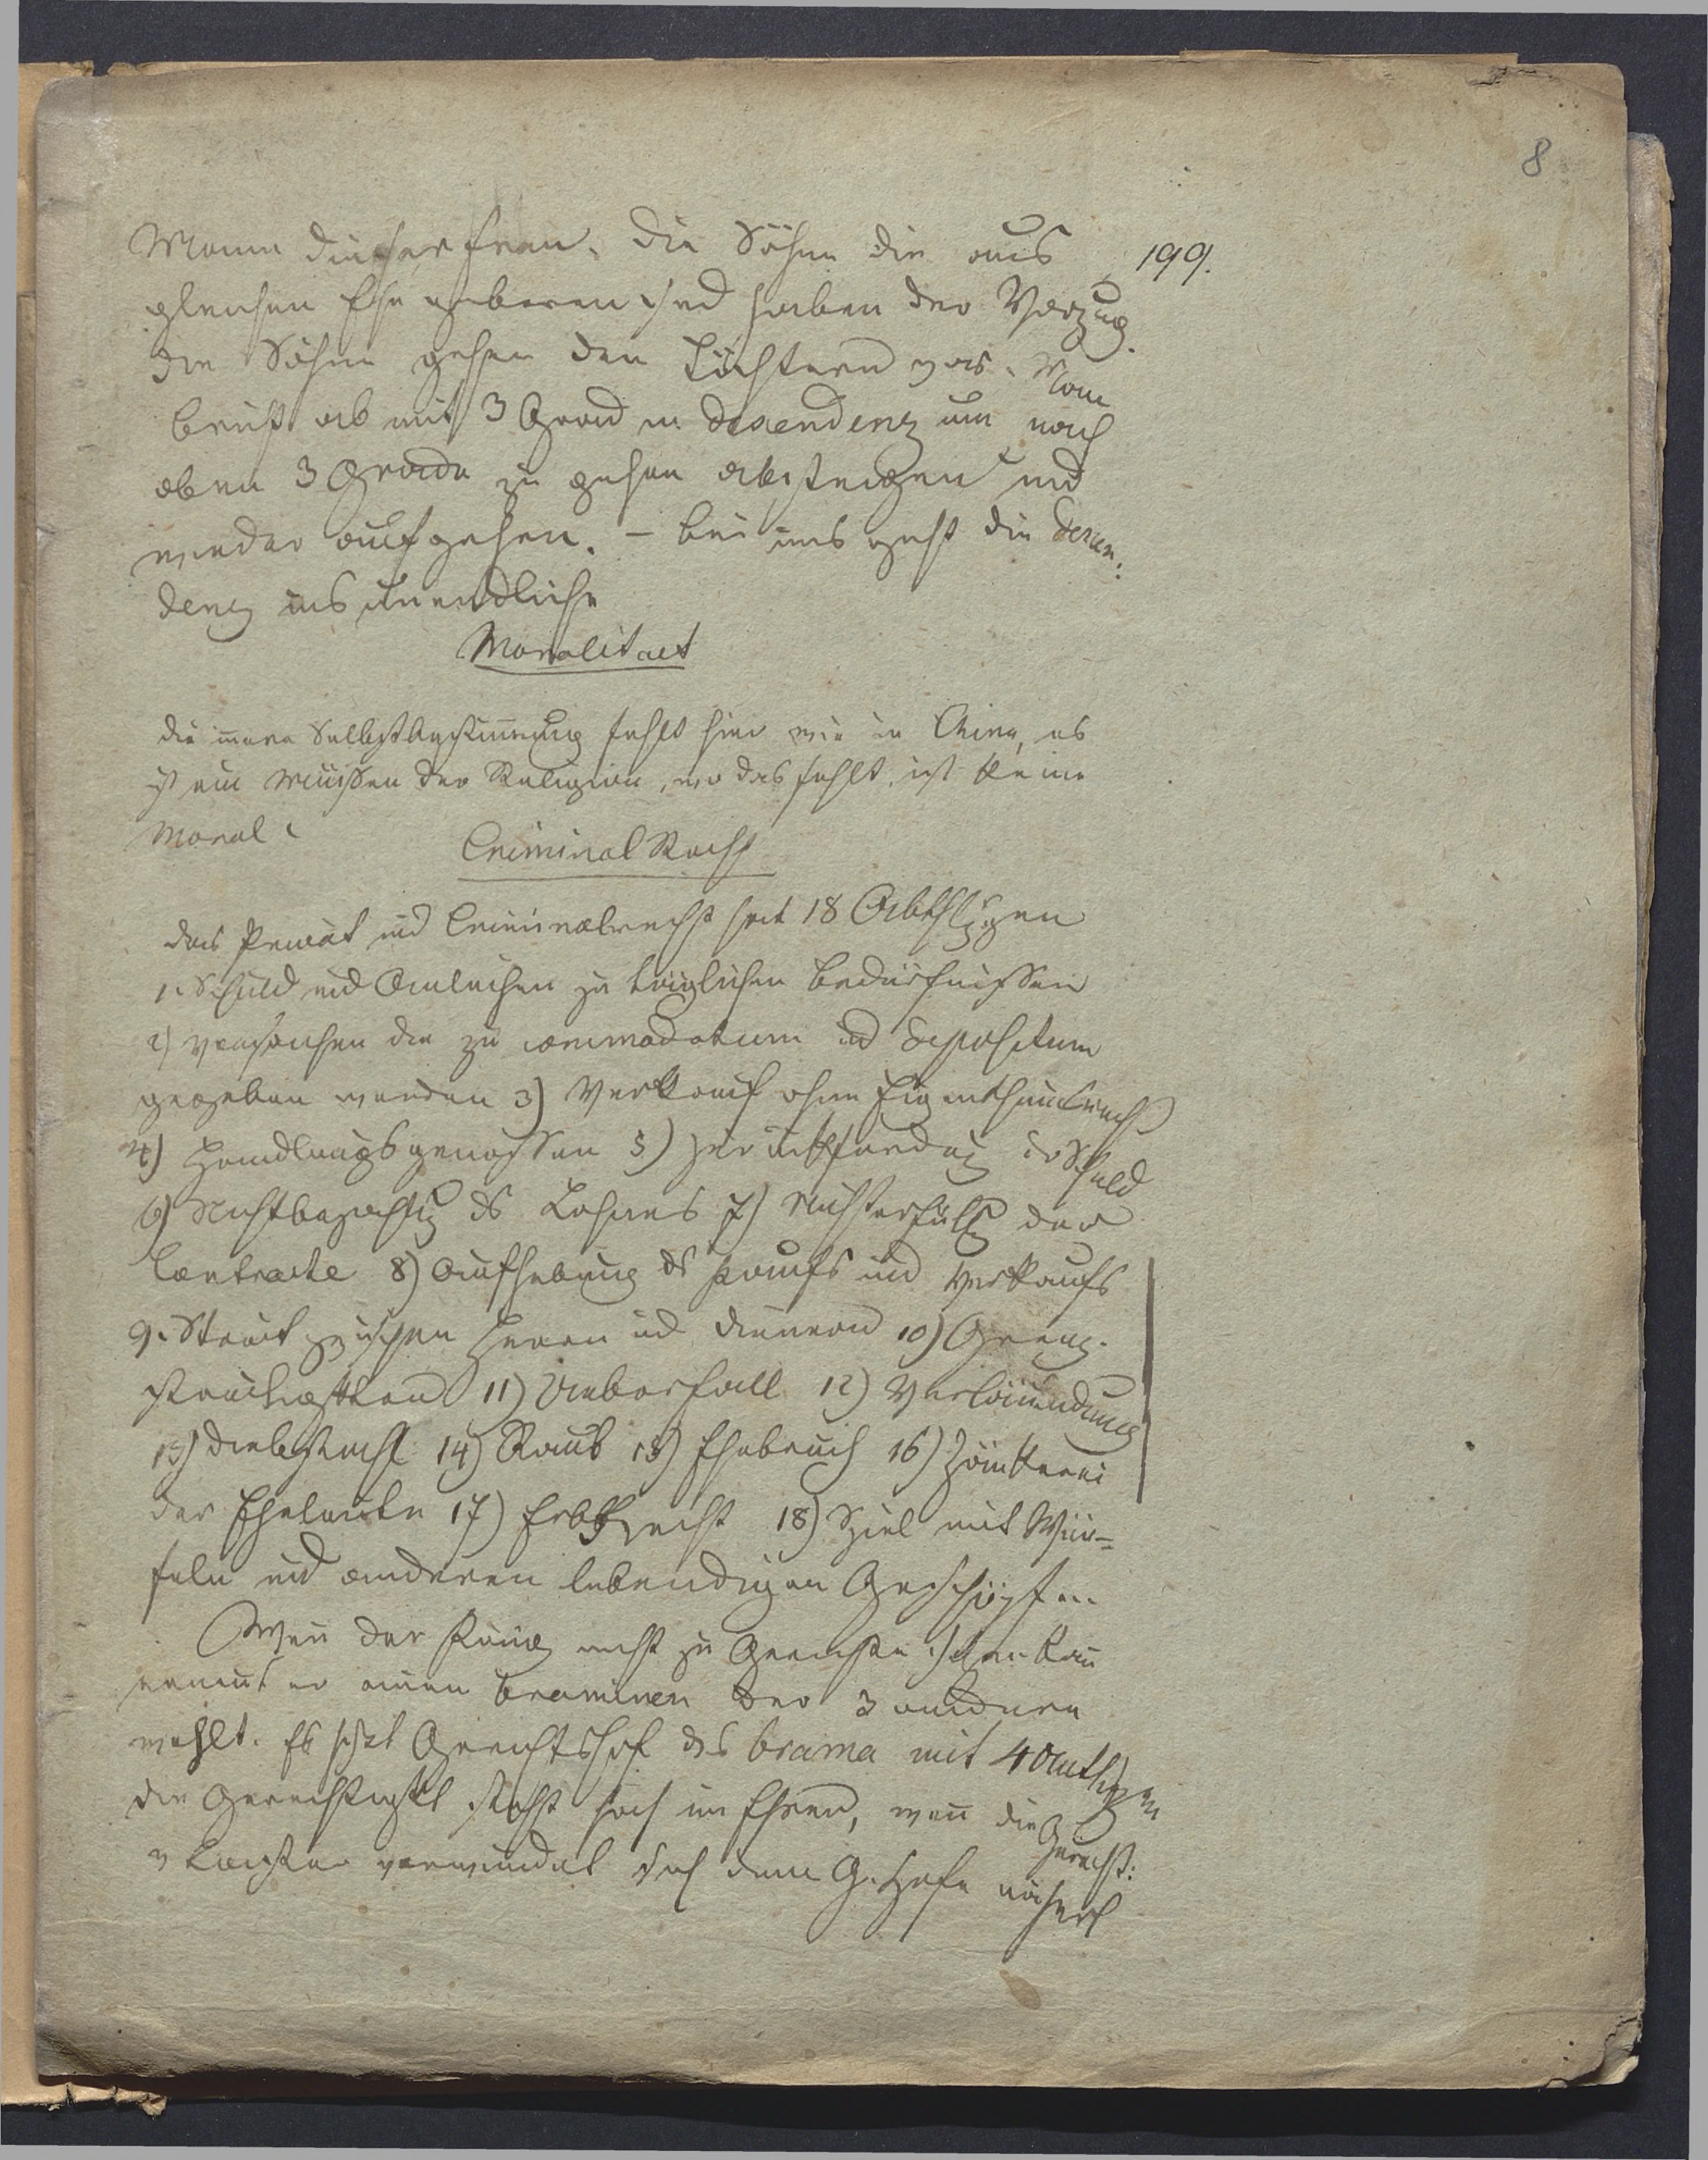 8
199.
Mann dieser Frau. Die Söhne die aus
gleicher Ehe geboren sind haben den Vorzug.
die Söhne gehen den Töchtern vor. Man
bricht ab mit 3 Grad in descendenz um nach
oben 3 Grade zu gehen absteigen und
wieder aufgehen. – bei uns geht die descen:
denz ins unendliche
Moralitaet
die innere Selbstbestimmung fehlt hier wie in China, es
ist ein Müssen der Religion, wo das fehlt, ist keine
Moral.
Criminal Recht
das Privat und Criminalrecht hat 18 Abthlgen
1. Schuld und Anleihen zu täglichen Bedürfnissen
2) die zu commodatum und depositum
gegeben werden 3) Verkauf ohne Eigenthumsrecht
4) Handlungsgenossen 5) der Schuld
6) Nichtbezahlg ds Lohnes 7) Nichterfüllg der
Contracte 8) Aufhebung ds Kaufs und Verkaufs
9. Streit zwischen Herrn und Dienern 10) Grenz-
streitigkten 11) Ueberfall 12) Verläumdung
13) Diebstahl 14) Raub 15) Ehebruch 16) Zänkerei
der Eheleute 17) Erbrecht 18) Spiel mit Wür=
feln und anderen lebendigen Geschöpfen.
Wenn der König nicht zu Gerichte sitzen kann
ernennt er einen Braminen der 3 andere
wählt. Es Gerichtshof des brama mit 4
die Gerechtigkt steht hoch in Ehren, wenn die Gerecht:
v Laster verwundet sich dem G. Hofe